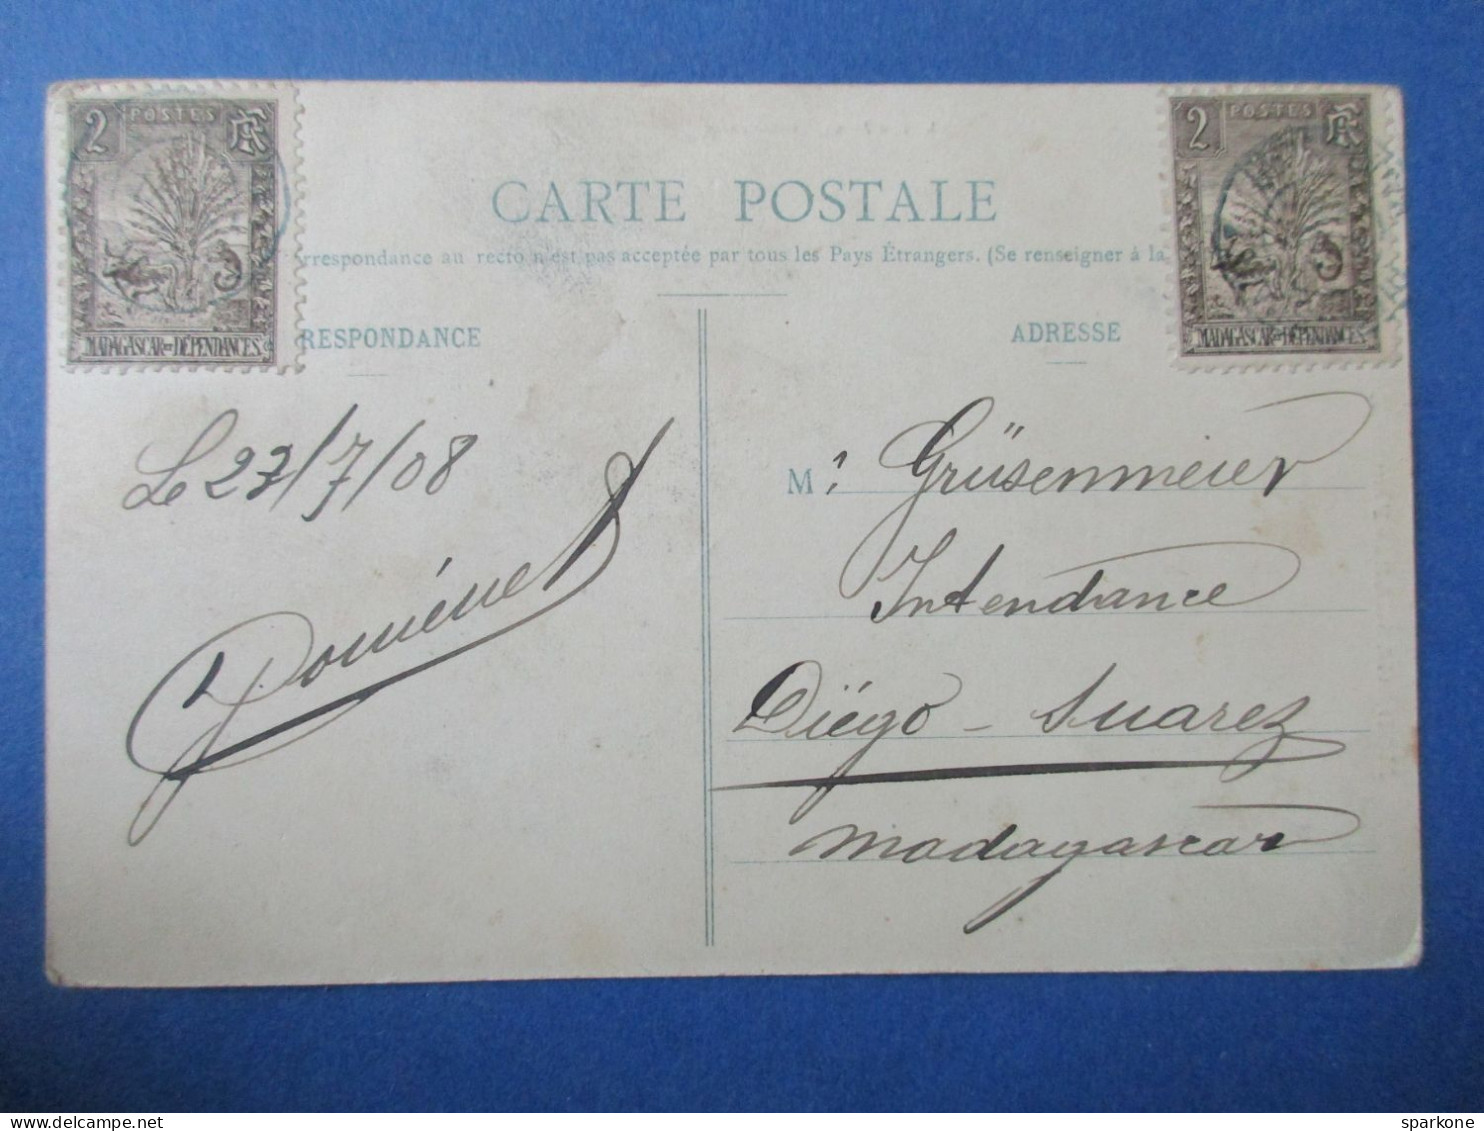 2 POSTES RF
2 POSTES RF
CARTE POSTALE
rrespondance au recto n'est pas acceptée par tous les Pays Étrangers. (Se renseigner à la
MADAGASCAR ET DÉPENDANCES
MADAGASCAR ET DÉPENDANCES
RESPONDANCE
ADRESSE
Le 27/7/08
M r Grüsenmeier
Intendance
Domenet
Diégo - Suarez
Madagascar
Copyright © sparkone